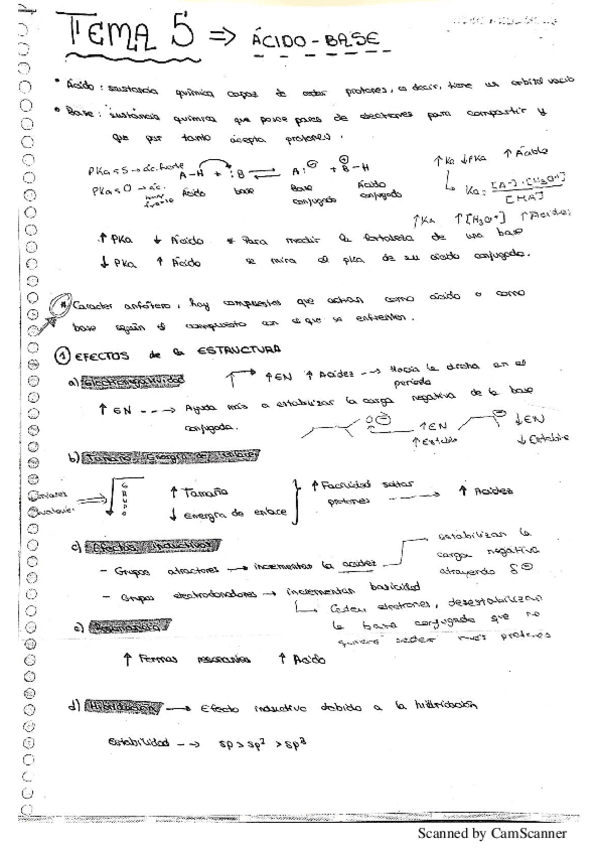 TEMA 5 ⇒ ÁCIDO-BASE
• Ácido: sustancia química capaz de ceder protones, es decir, tiene un orbital vacío
• Base: sustancia química que posee pares de electrones para compartir y
que por tanto acepta protones.
PKa<5 → ác. fuerte A-H + :B ⇌ A:⊖ + ⊕B-H
PKa<0 → ác. muy fuerte
Ácido base Base conjugada Ácido conjugado
↑Ka ↓PKa ↑Ácido
Ka = [A-]·[H3O+] / [HA]
↑Ka ↑[H3O+] ↑Acidez
↑ PKa ↓ Ácido * Para medir la fortaleza de una base
↓ PKa ↑ Ácido se mira el pKa de su ácido conjugado.
* Caracter anfótero, hay compuestos que actúan como ácido o como
base según el compuesto con el que se enfrenten.
① EFECTOS de la ESTRUCTURA
a) Electronegatividad ↑EN ↑Acidez --→ Hacia la drcha en el
periodo
↑ EN ---→ Ayuda más a estabilizar la carga negativa de la base
conjugada.
O⊖ ↑EN ↑Estable
⊖ ↓EN ↓Estable
b) Tamaño. Energía de enlace
GRUPO
↑ Tamaño
↓ Energía de enlace
↑ Facilidad soltar
protones ----→ ↑ Acidez
c) Efectos inductivos
- Grupos atractores → incrementan la acidez
estabilizan la
carga negativa
atrayendo δ⊖
- Grupos electrodonadores → incrementan basicidad
Ceden electrones, desestabilizan
la base conjugada que no
más protones
e) Resonancia
↑ Formas resonantes ↑ Ácido
d) Hibridación → Efecto inductivo debido a la hibridación
Estabilidad --→ sp > sp² > sp³
Scanned by CamScanner